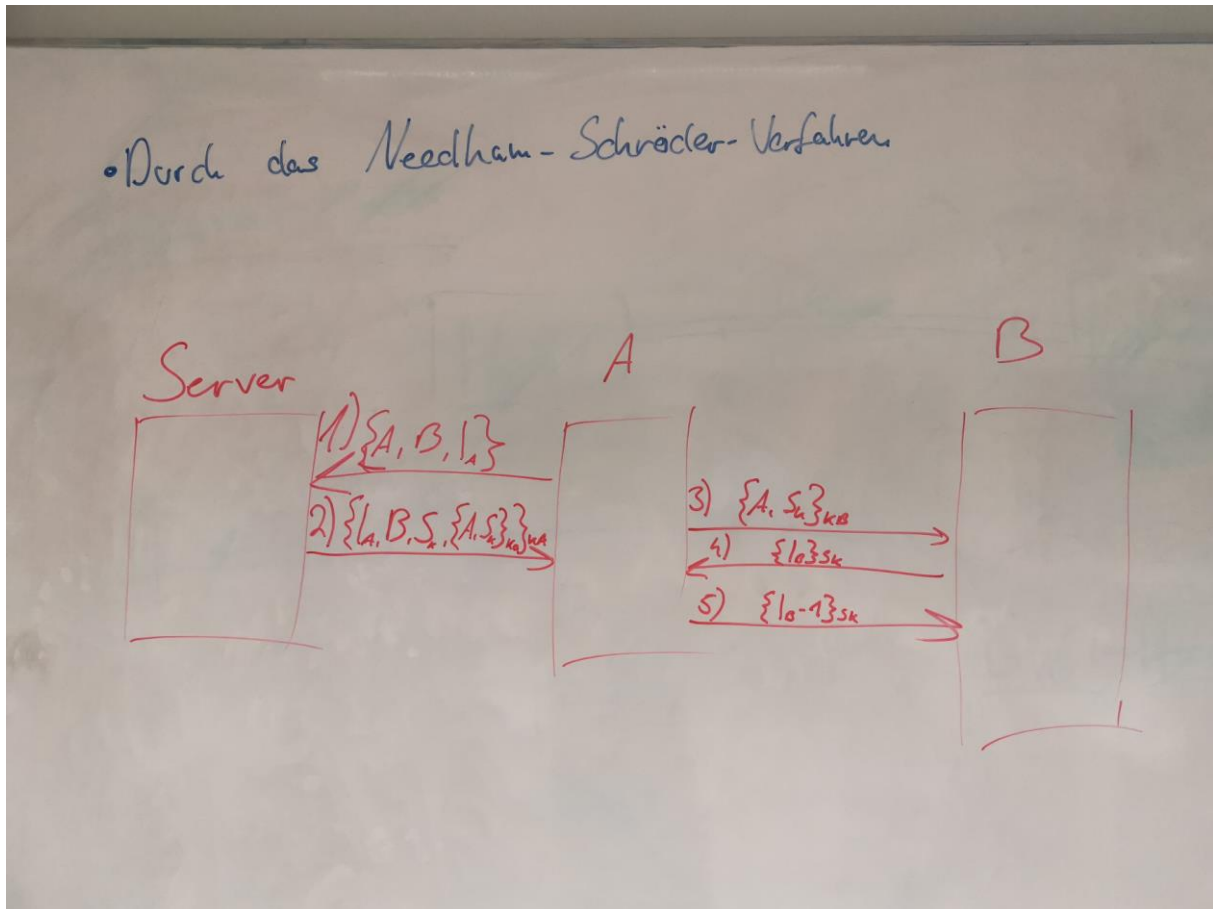 •Durch das Needham-Schröder-Verfahren
Server
A
B
1) {A, B, I_A}
2) {I_A, B, S_K, {A, S_K}_KB}_KA
3) {A, S_K}_KB
4) {I_B}_SK
5) {I_B-1}_SK